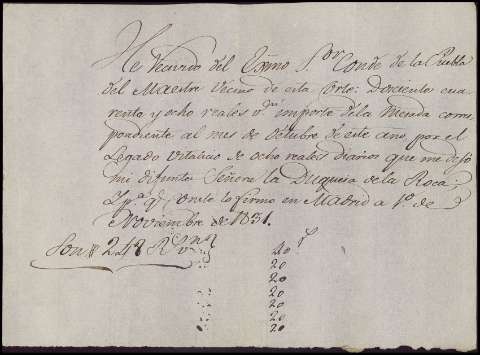 He recivido del Exmo Sor Conde de la Puebla
del Maestre Vecino de esta Corte: Doscientos cua
renta y ocho reales vn. importe de la Mesada corres
pondiente al mes de Octubre de este año, por el
Legado vitalicio de ocho reales diarios que me dejó
mi difunta Señora la Duquesa de la Roca:
Y pa. q. conste lo firmo en Madrid a 1o. de
Noviembre de 1831.
Son 248 Rs. vn.
20
20
20
20
20
20
20